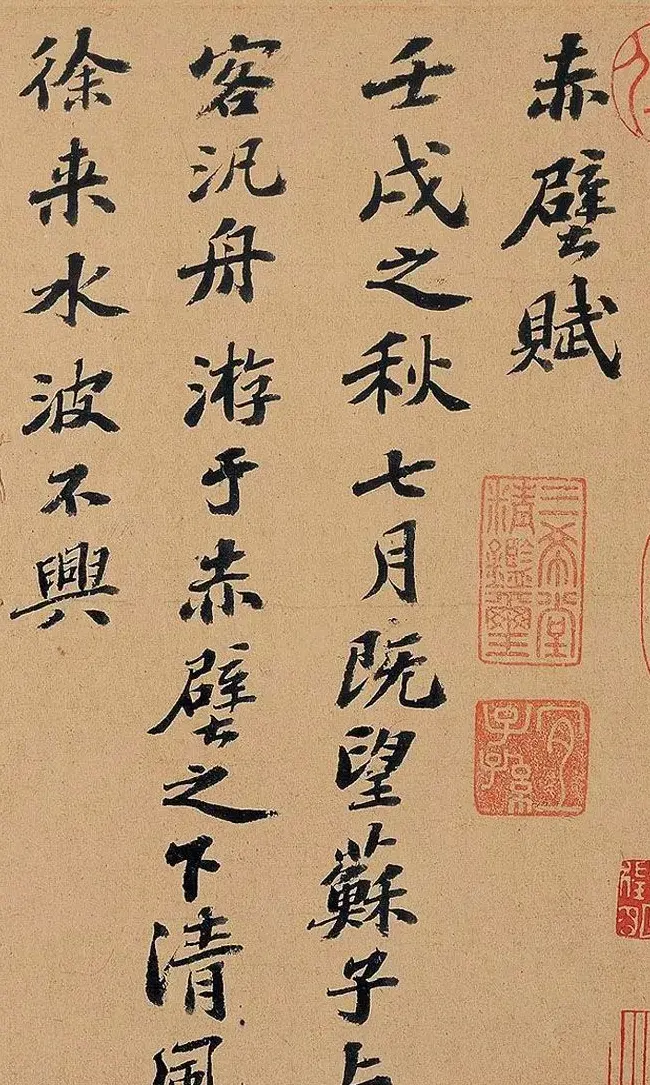 赤壁賦
三希堂精鑑璽
宜子孫
壬戌之秋七月既望蘇子与
客汎舟游于赤壁之下清風
徐来水波不興